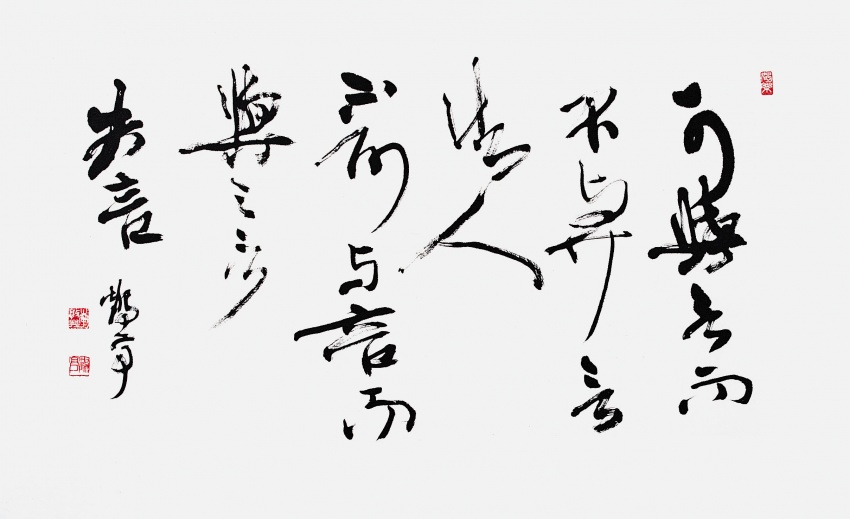 可與言而
不與言
失人
不可与言而
與之言
失言